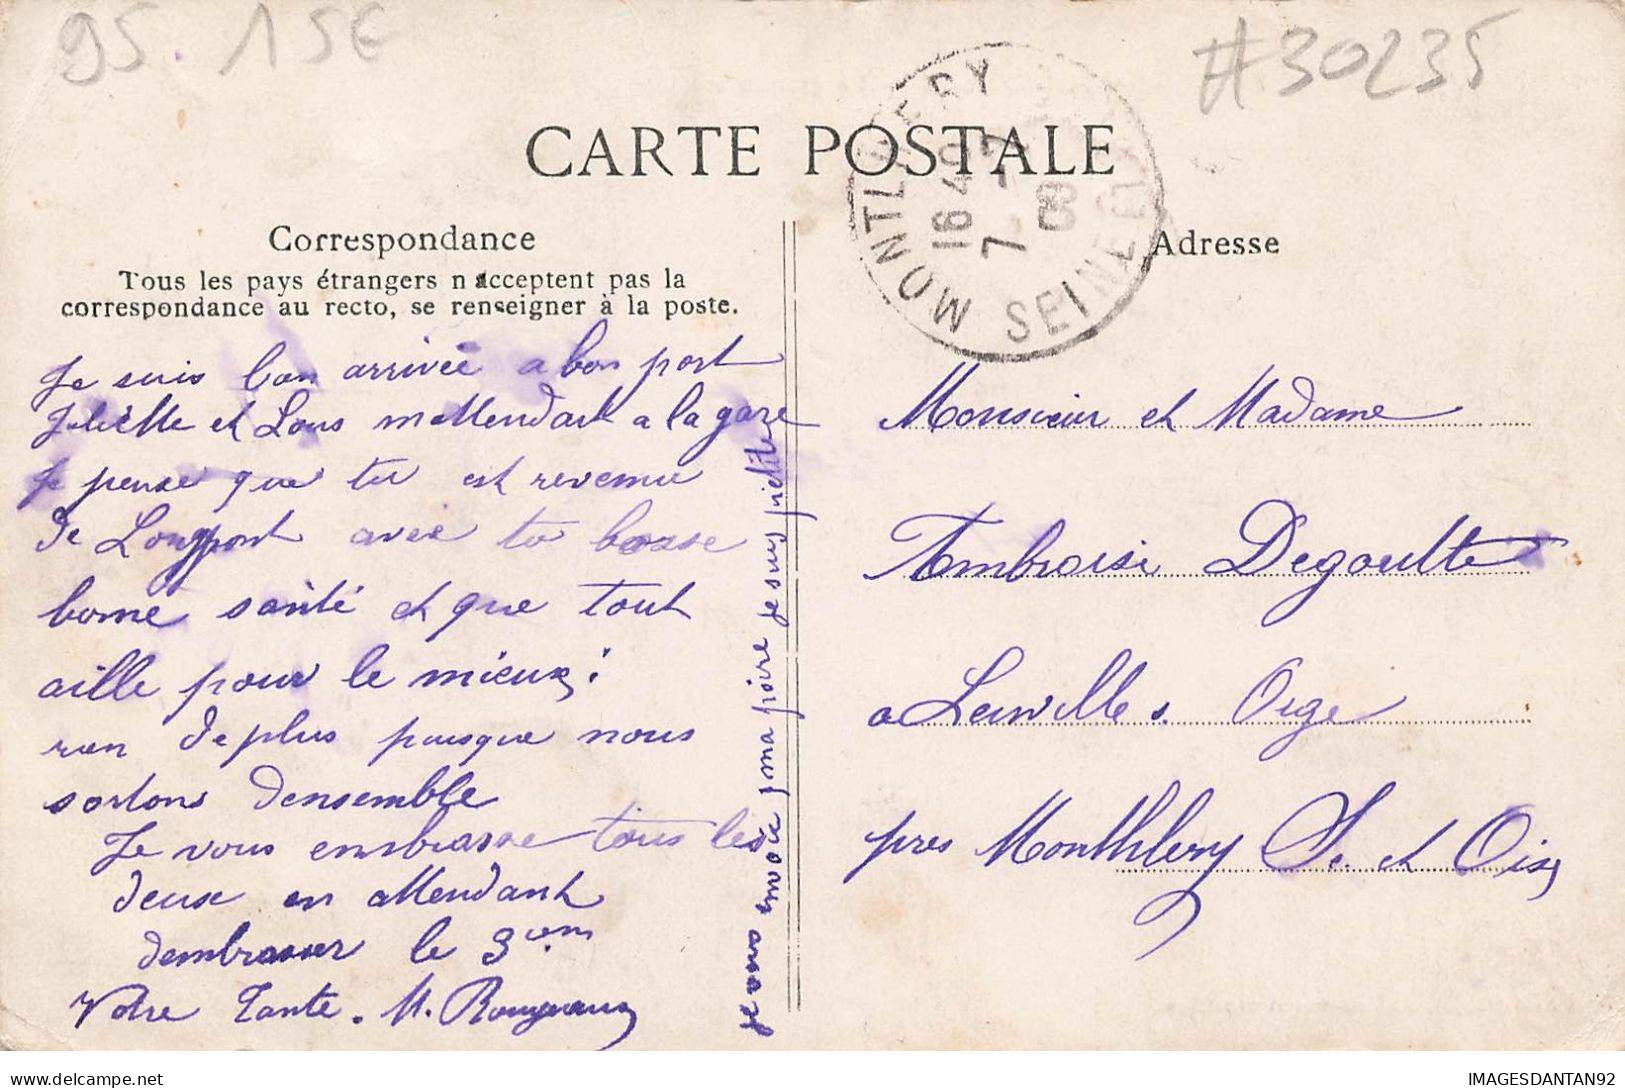 95. 15€
#30235
CARTE POSTALE
MONTLHERY SEINE
16 40
7 - 7
09
Correspondance
Tous les pays étrangers n'acceptent pas la
correspondance au recto, se renseigner à la poste.
Je suis ban arrivée a bon port
Juliette et Lous mattendait a la gare
Je pense que tu est revenue
de Longpont avec ta
bonne santé et que tout
aille pour le mieux;
rien de plus puisque nous
sortons densemble
Je vous embrasse tous les
deux en attendant
dembrasser le 3em
Votre Tante. M.
je vous envoie ma poire je suis
Adresse
Monsieur et Madame
Ambroise Degoulte
a Leuville s. Orge
pres Monthlery S. et Oise
IMAGESDANTAN92
delcampe.net